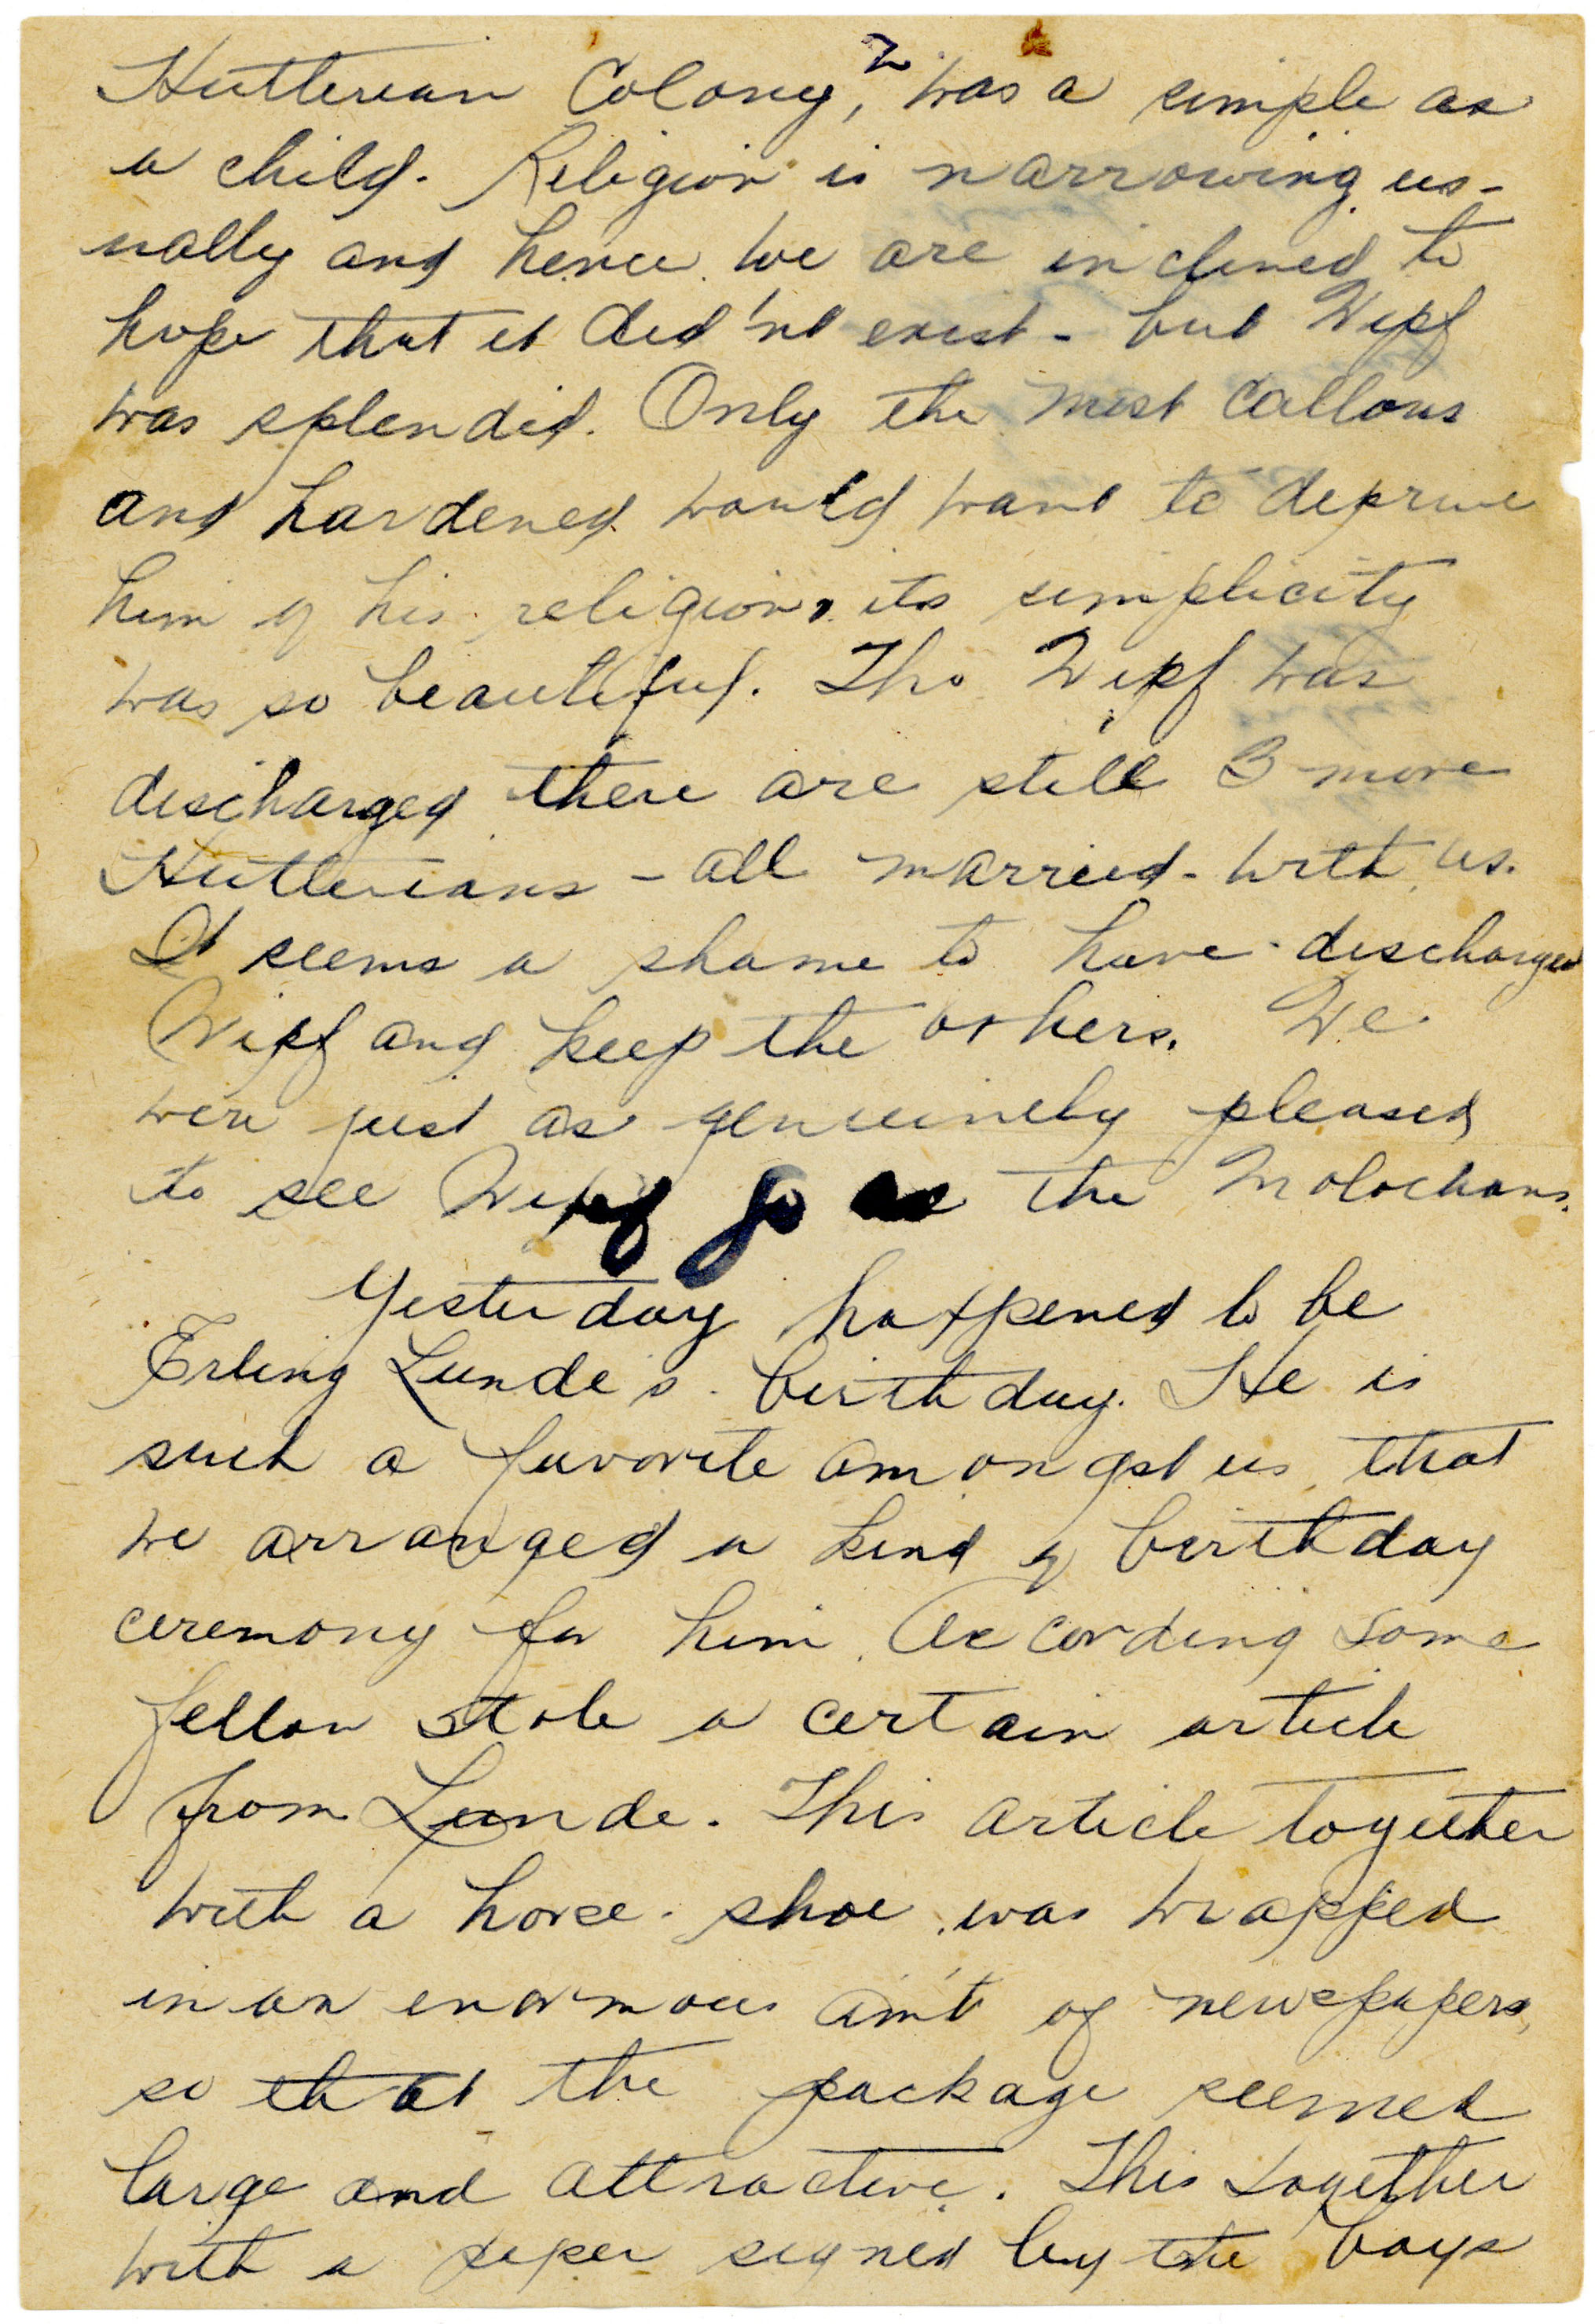 2
Hutterian Colony, was a simple as
a child. Religion is narrowing us-
ually and hence we are inclined to
hope that it did'nt exist - but Wipf
was splendid. Only the most callous
and hardened would want to deprive
him of his religion, its simplicity
was so beautiful. Tho Wipf was
discharged there are still 3 more
Hutterians - all married - with us.
It seems a shame to have discharged
Wipf and keep the others. We
were just as genuinely pleased
to see Wipf go as the Molochans.
Yesterday happened to be
Erling Lunde's birthday. He is
such a favorite amongst us that
we arranged a kind of birthday
ceremony for him. According some
fellow stole a certain article
from Lunde. This article together
with a horse-shoe was wrapped
in an enormous am't of newspapers,
so that the package seemed
large and attractive. This together
with a paper signed by the boys